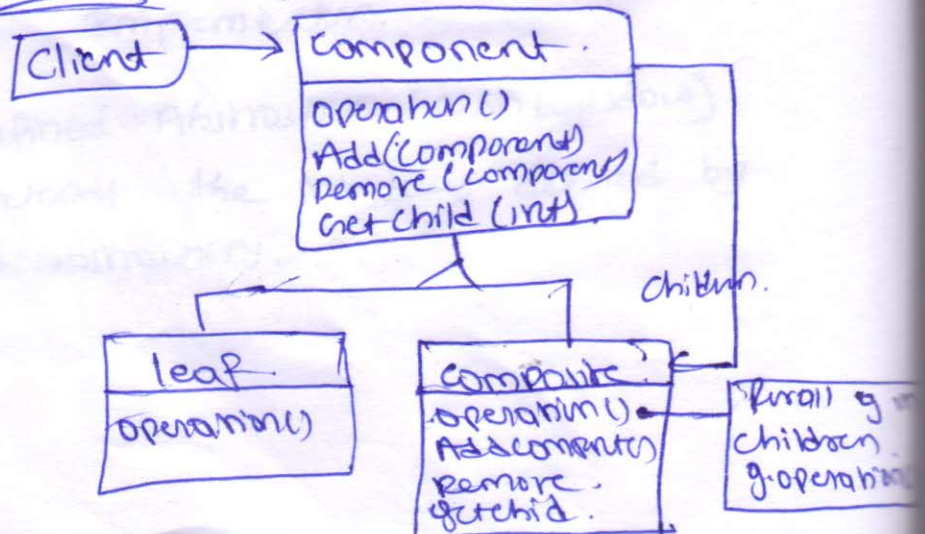 Client
Component.
operation()
Add(Component)
Remove (component)
Get Child (int).
Children.
leaf.
operation()
Composite.
operation()
Add component()
Remove.
getchid.
Forall g in
Children
g.operation